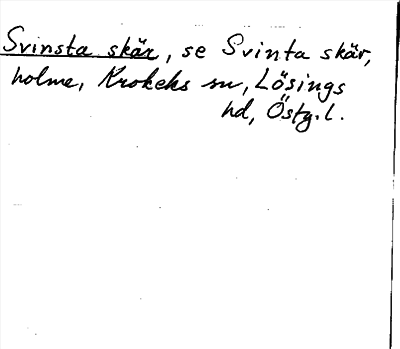 Svinsta skär, se Svinta skär,
holme, Krokeks sn, Lösings
hd, Östg.l.